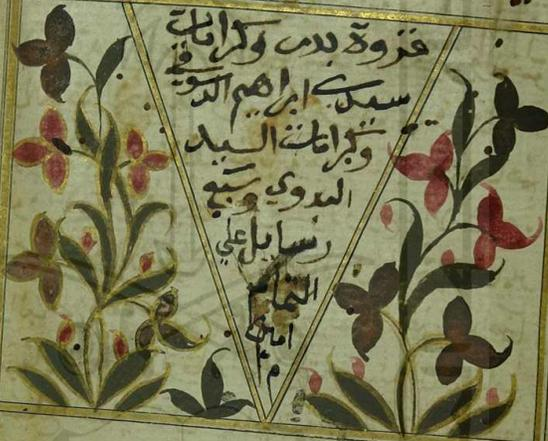 غزوة بدر وكرامات
سيدي ابراهيم الدسوقي
وكرامات السيد
البدوي وسبع
رسايل علي
التمام
امين
م